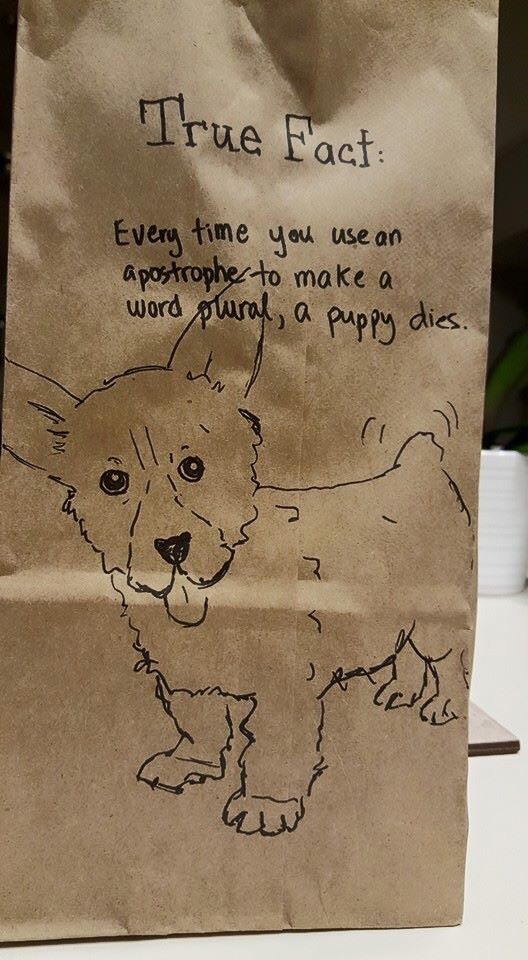 True Fact:
Every time you use an
apostrophe to make a
word plural, a puppy dies.